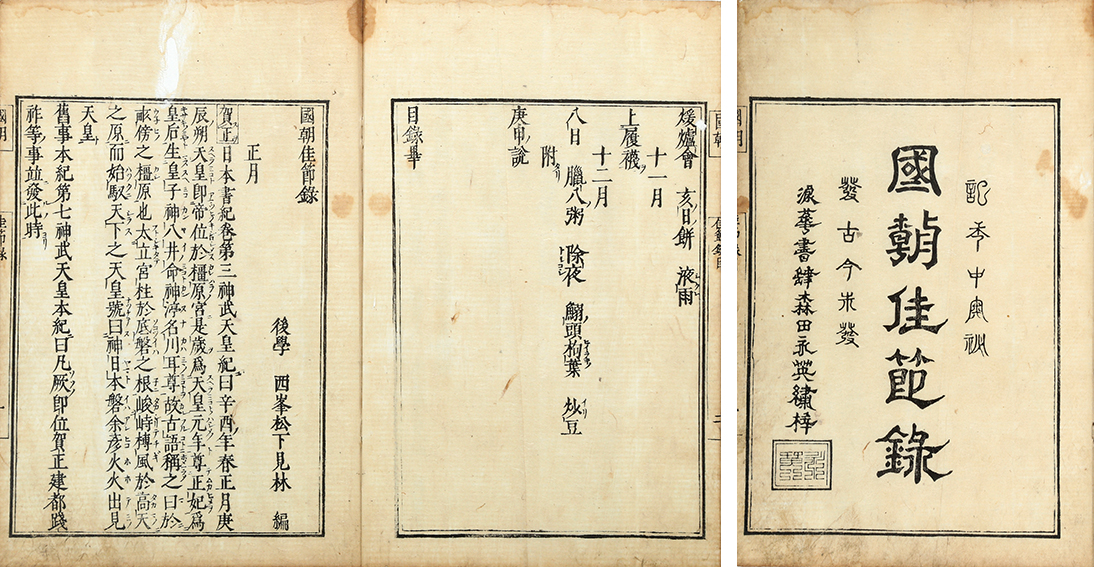 記秊中奧祕
國朝佳節錄
發古今未發
浪華書肆森田永英繡梓
煖爐會 亥日餅 液雨
十一月
上履襪
十二月
八日 臘八粥 除夜 鰯頭枸葉 炒豆
附
庚申說
目錄畢
國朝佳節錄
後學 西峯松下見林 編
正月
賀正 日本書紀卷第三神武天皇紀曰辛酉年春正月庚
辰朔天皇即帝位於橿原宮是歲爲天皇元年尊正妃爲
皇后生皇子神八井命神渟名川耳尊故古語稱之曰於
畝傍之橿原也太立宮柱於底磐之根峻峙榑風於高天
之原而始馭天下之天皇號曰神日本磐余彥火火出見
天皇
舊事本紀第七神武天皇本紀曰凡厥即位賀正建都踐
祚等事並發此時